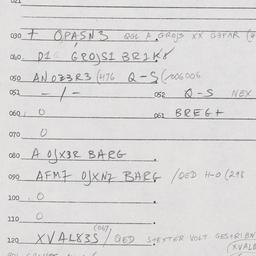 021
030 + OPASN3 QGL A GROJS XX G3PAR
040 D1 GROJS1 BR1K8
050 ANOZ3R3 (H76 Q-S (006006
051 - / - 052 Q-S NEX
060 0 061 BREG+
070 0
080 A OJX3R BARG
090 AFM7 OJXN7 BARG / OED H-0 (298
100 0
110 0
(067)
120 XVAL83S / OED STEXTER VOLT
(XVAL8